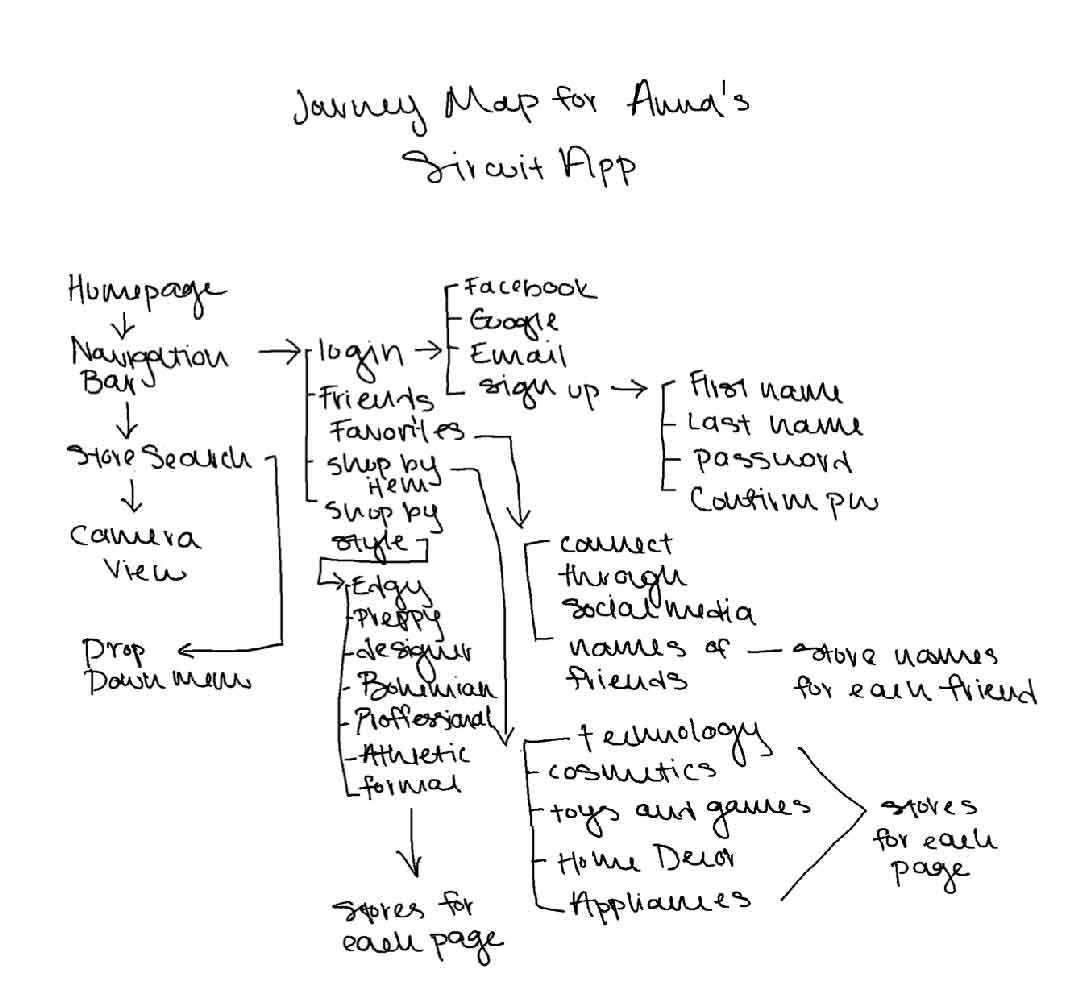 Jouney Map for Anna's
Sircuit App
Homepage
Navigation
Bar
Store Search
Camera
View
Drop
Down menu
login
Friends
Favorites
shop by
item
shop by
style
Facebook
Google
Email
sign up
First name
Last name
password
Confirm pw
connect
through
social media
names of
friends
store names
for each friend
Edgy
Preppy
designer
Bohemian
Proffessional
Athletic
formal
stores for
each page
technology
cosmetics
toys and games
Home Decor
Appliances
stores
for each
page